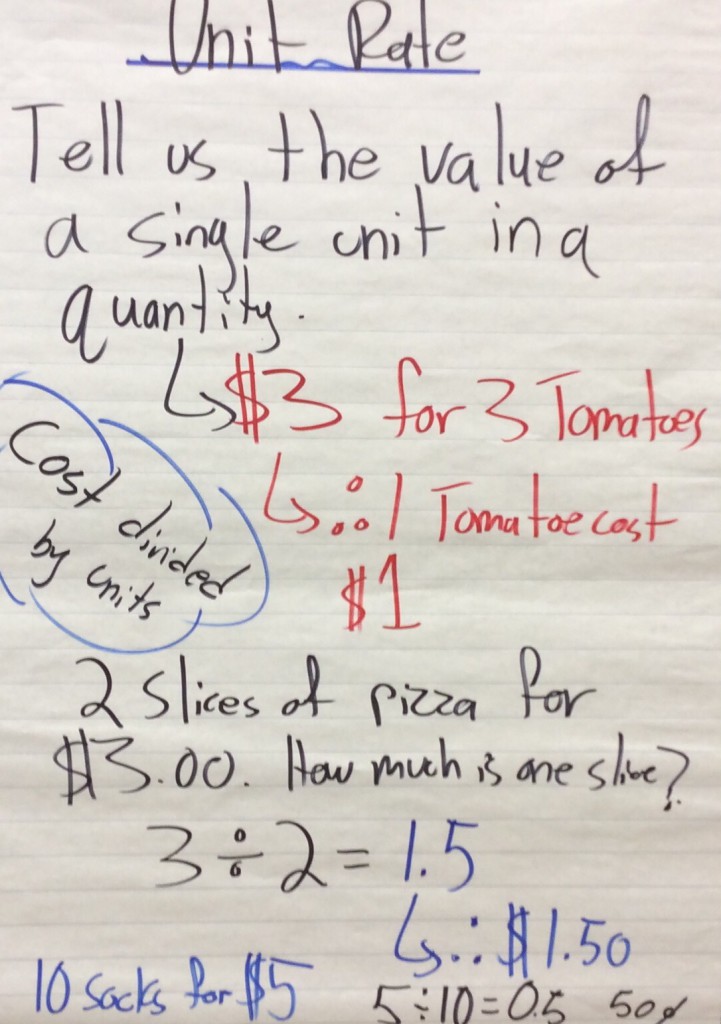 Unit Rate
Tell us the value of
a single unit in a
quantity.
↳ $3 for 3 Tomatoes
↳ ∴ 1 Tomatoe cost
$1
Cost divided
by units
2 Slices of pizza for
$3.00. How much is one slice?
3 ÷ 2 = 1.5
↳ ∴ $1.50
10 Socks for $5
5 ÷ 10 = 0.5 50¢